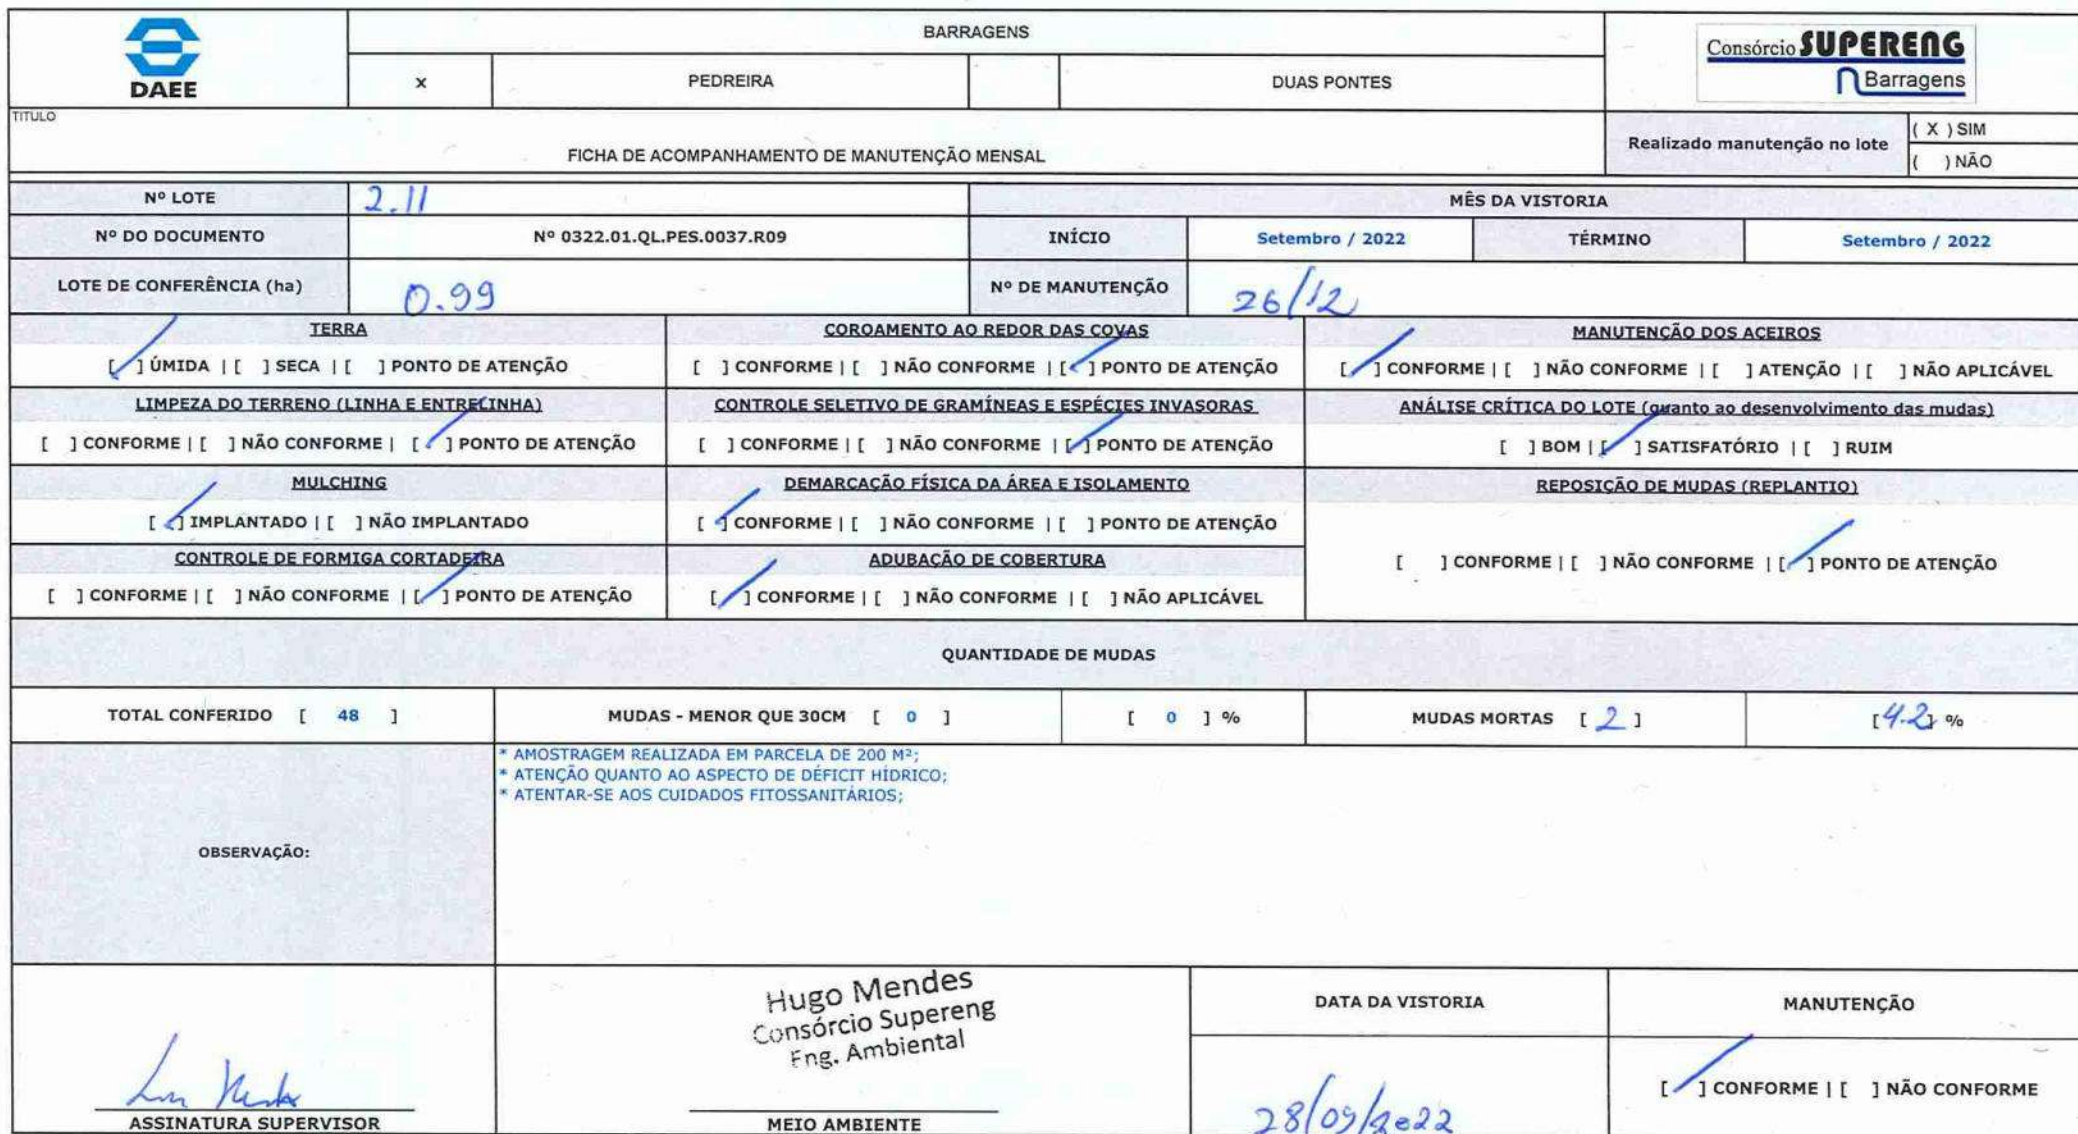 DAEE
BARRAGENS
x PEDREIRA DUAS PONTES
Consórcio SUPERENG
Barragens
TITULO
FICHA DE ACOMPANHAMENTO DE MANUTENÇÃO MENSAL
Realizado manutenção no lote
( X ) SIM
( ) NÃO
Nº LOTE 2.11
MÊS DA VISTORIA
Nº DO DOCUMENTO Nº 0322.01.QL.PES.0037.R09 INÍCIO Setembro / 2022 TÉRMINO Setembro / 2022
LOTE DE CONFERÊNCIA (ha) 0.99 Nº DE MANUTENÇÃO 26/12
TERRA
[✓] ÚMIDA | [ ] SECA | [ ] PONTO DE ATENÇÃO
COROAMENTO AO REDOR DAS COVAS
[ ] CONFORME | [ ] NÃO CONFORME | [✓] PONTO DE ATENÇÃO
MANUTENÇÃO DOS ACEIROS
[✓] CONFORME | [ ] NÃO CONFORME | [ ] ATENÇÃO | [ ] NÃO APLICÁVEL
LIMPEZA DO TERRENO (LINHA E ENTRELINHA)
[ ] CONFORME | [ ] NÃO CONFORME | [✓] PONTO DE ATENÇÃO
CONTROLE SELETIVO DE GRAMÍNEAS E ESPÉCIES INVASORAS
[ ] CONFORME | [ ] NÃO CONFORME | [✓] PONTO DE ATENÇÃO
ANÁLISE CRÍTICA DO LOTE (quanto ao desenvolvimento das mudas)
[ ] BOM | [✓] SATISFATÓRIO | [ ] RUIM
MULCHING
[✓] IMPLANTADO | [ ] NÃO IMPLANTADO
DEMARCAÇÃO FÍSICA DA ÁREA E ISOLAMENTO
[✓] CONFORME | [ ] NÃO CONFORME | [ ] PONTO DE ATENÇÃO
REPOSIÇÃO DE MUDAS (REPLANTIO)
[ ] CONFORME | [ ] NÃO CONFORME | [✓] PONTO DE ATENÇÃO
CONTROLE DE FORMIGA CORTADEIRA
[ ] CONFORME | [ ] NÃO CONFORME | [✓] PONTO DE ATENÇÃO
ADUBAÇÃO DE COBERTURA
[✓] CONFORME | [ ] NÃO CONFORME | [ ] NÃO APLICÁVEL
QUANTIDADE DE MUDAS
TOTAL CONFERIDO [ 48 ] MUDAS - MENOR QUE 30CM [ 0 ] [ 0 ] % MUDAS MORTAS [ 2 ] [4.2] %
OBSERVAÇÃO:
* AMOSTRAGEM REALIZADA EM PARCELA DE 200 M²;
* ATENÇÃO QUANTO AO ASPECTO DE DÉFICIT HÍDRICO;
* ATENTAR-SE AOS CUIDADOS FITOSSANITÁRIOS;
ASSINATURA SUPERVISOR
Hugo Mendes
Consórcio Supereng
Eng. Ambiental
MEIO AMBIENTE
DATA DA VISTORIA
28/09/2022
MANUTENÇÃO
[✓] CONFORME | [ ] NÃO CONFORME